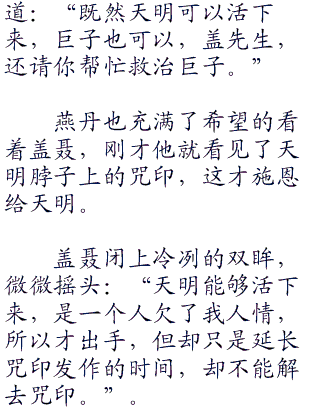 道：“既然天明可以活下
来，巨子也可以，盖先生，
还请你帮忙救治巨子。”
燕丹也充满了希望的看
着盖聂，刚才他就看见了天
明脖子上的咒印，这才施恩
给天明。
盖聂闭上冷冽的双眸，
微微摇头：“天明能够活下
来，是一个人欠了我人情，
所以才出手，但却只是延长
咒印发作的时间，却不能解
去咒印。”。